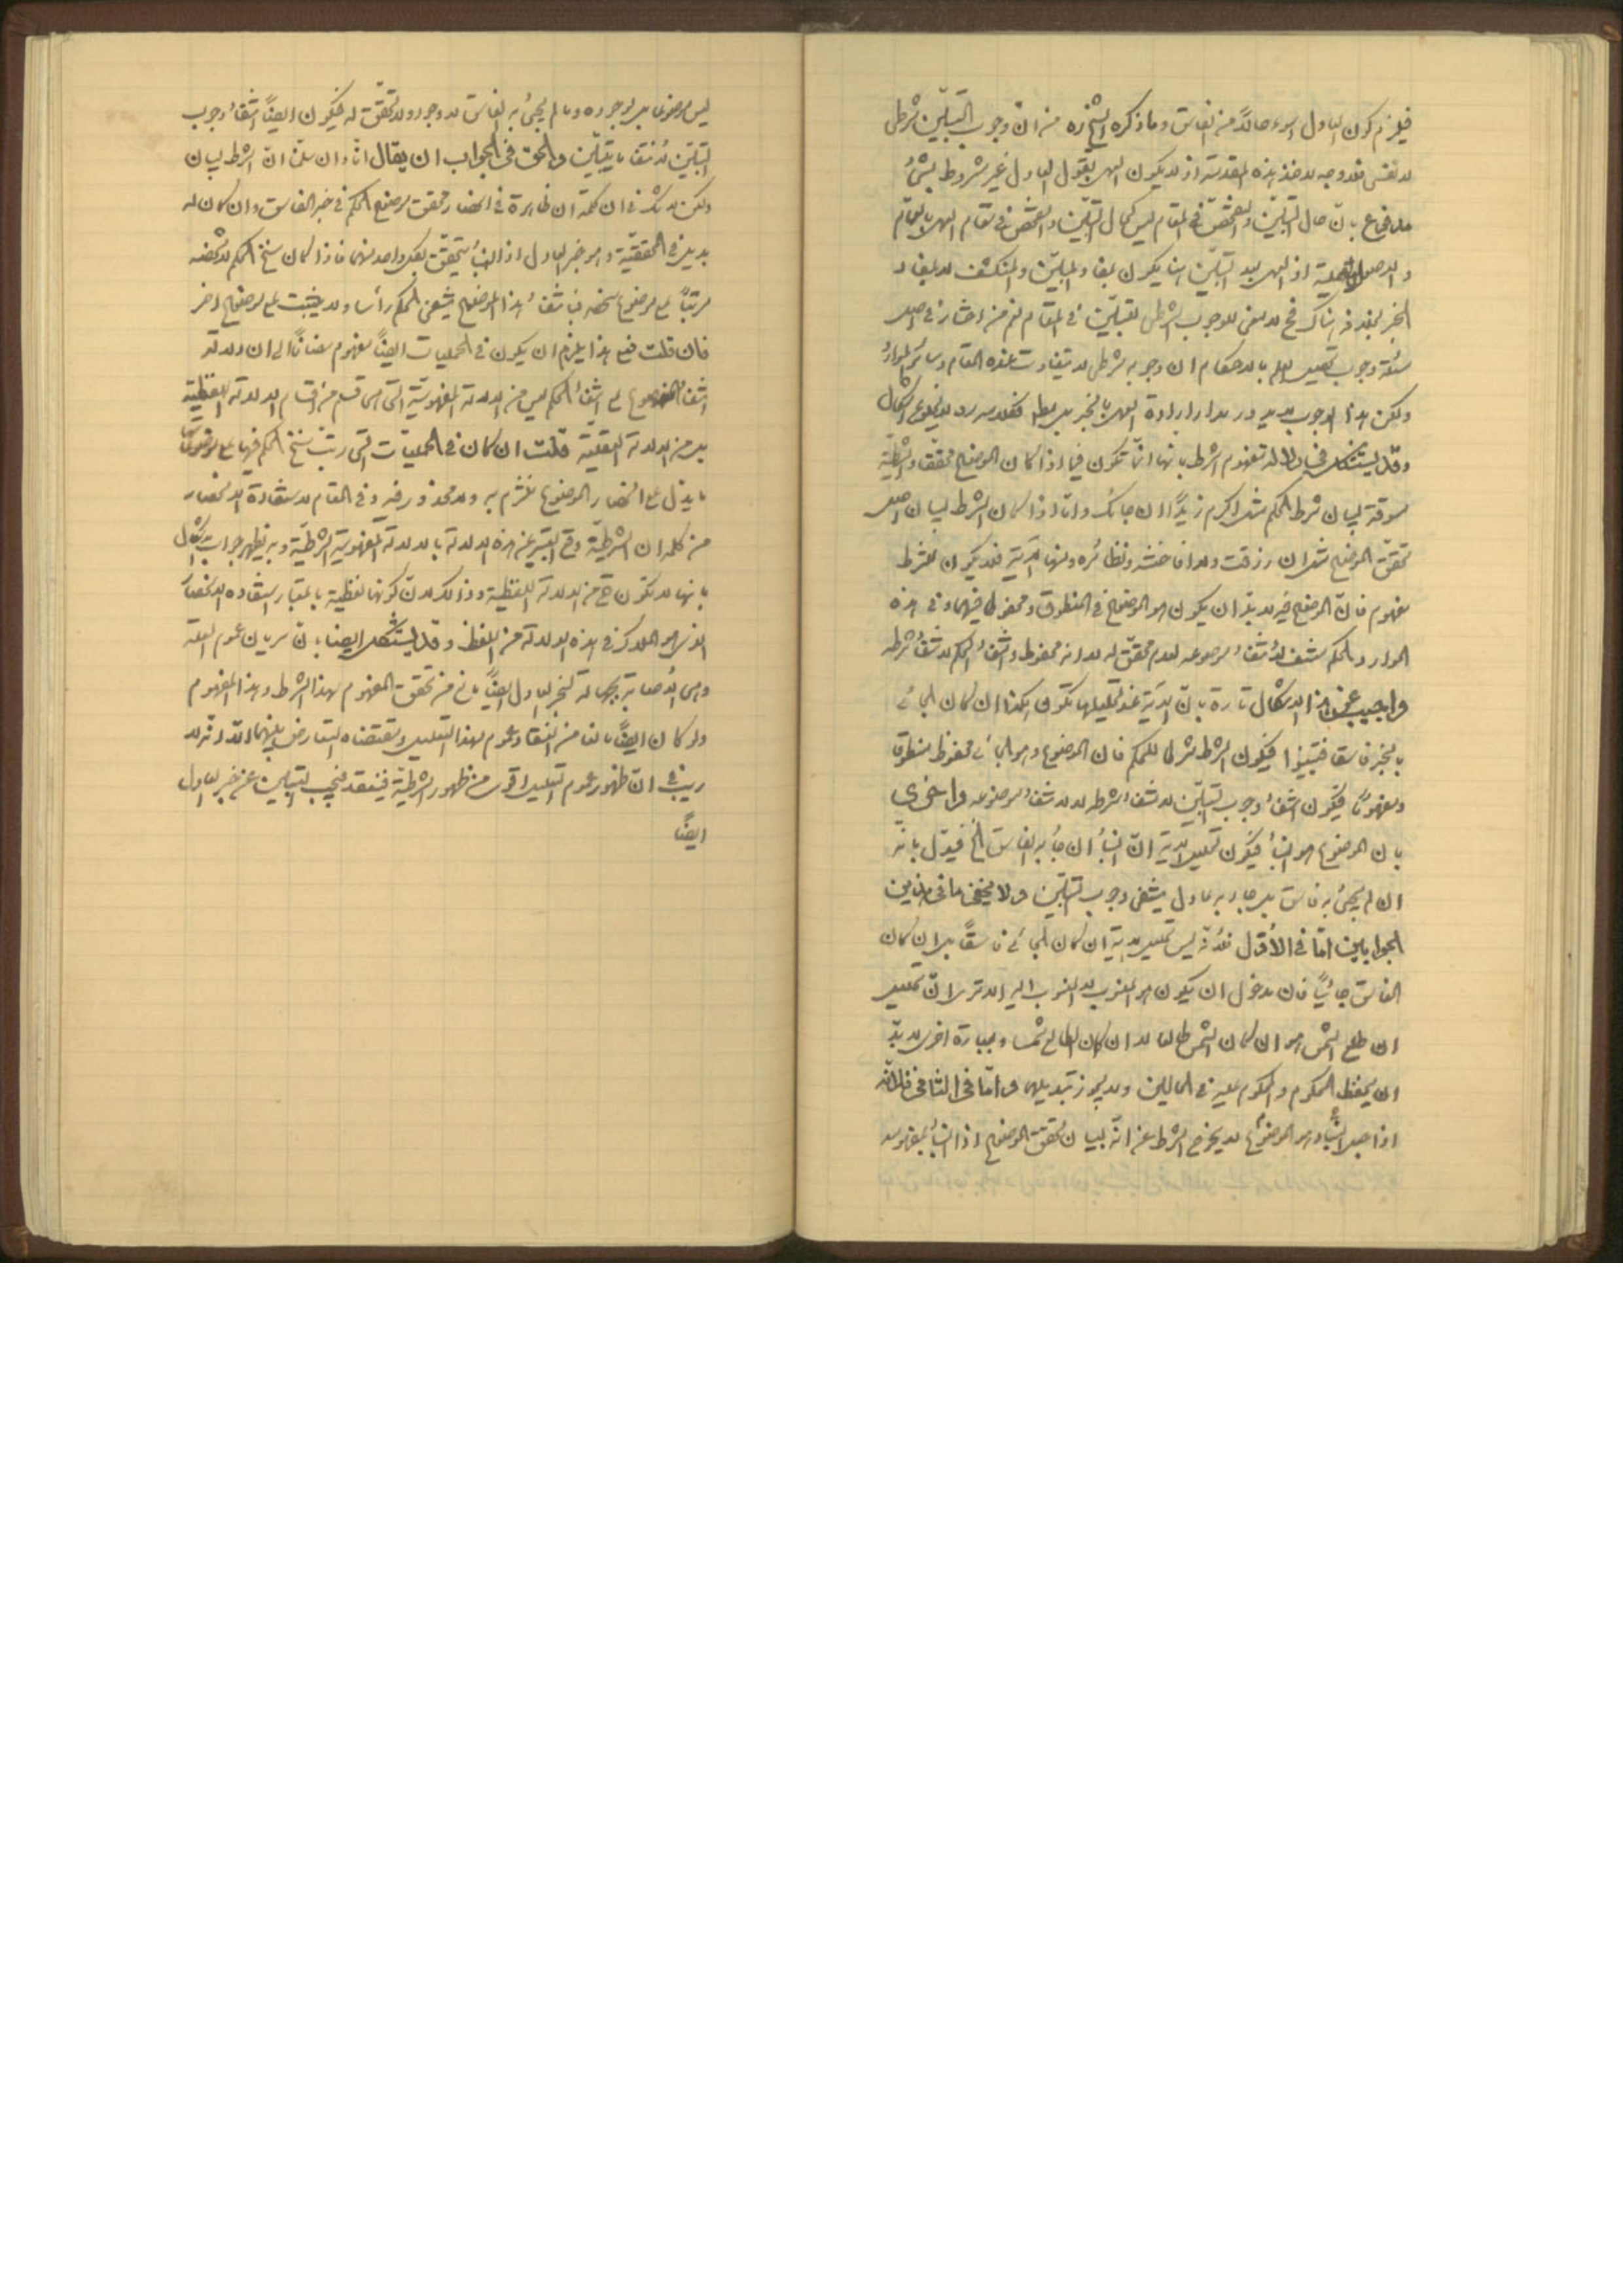 فيلزم كون العادل اسوء حالاً من الفاسق وما ذكره الشيخ ره من انّ وجوب التبيّن شرطى
لا نفسى فلا وجه لاخذ هذه المقدمة اذ لا يكون العمل بقول العادل غير مشروط بشئ
مدفوع بانّ حال التبيّن والتفحّص فى المقام ليس كحال التبيّن والتفحّص فى مقام العمل بالعامّ
والاصول العملية اذ العمل بعد التبيّن هنا يكون بمفاد المبيّن والمنكشف لا بمفاد
الخبر بخلافه هناك فح لا معنى للوجوب الشرطى للتبيّن فى المقام نعم من اختار فى اصل
مسئلة وجوب تحصيل العلم بالاحكام ان وجوبه شرطى لا يتفاوت عنده المقام وسائر الموارد
ولكن هذا الوجوب يدور مدار ارادة العمل بالخبر لا مطلقا
وقد يستشكل فى دلالة مفهوم الشرط بانها انّما تكون فيما اذا كان الموضوع محقّقا والشرطية
مسوقة لبيان شرط الحكم مثل اكرم زيدًا ان جائك وامّا اذا كان الشرط لبيان اصل
تحقّق الموضوع مثل ان رزقت ولدا فاختنه ونظائره ومنها الآية فلا يكون للشرط
مفهوم فانّ الموضوع فيه لا بدّ ان يكون هو الموضوع فى المنطوق ومحفوظ فيهما وفى هذه
الموارد والحكم منتف لانتفاء موضوعه لعدم تحقّق له لا انه محفوظ وانتفاء الحكم لانتفاء شرطه
واجيب عن هذا الاشكال تارة بانّ الآية عند تحليلها تكون هكذا ان كان الجائى
بالخبر فاسقا فتبينوا فيكون الشرط شرطا للحكم فان الموضوع وهو الجائى محفوظ منطوقا
ومفهومًا فيكون انتفاء وجوب التبيّن لانتفاء شرطه لا لانتفاء موضوعه واخرى
بان الموضوع هو النبأ فيكون تحليل الاية انّ النبأ ان جاء به الفاسق الخ فيدل بانه
ان لم يجئ به فاسق بل جاء به عادل ينتفى وجوب التبيّن ولا يخفى ما فى هذين
الجوابين امّا فى الأوّل فلانّه ليس تحليل الاية ان كان الجائى فاسقاً بل ان كان
الفاسق جائياً فان مدخول ان يكون هو المنسوب لا المنسوب اليه الا ترى انّ تحليل
ان طلع الشمس هو ان كان الشمس طالعا لا ان كان الطالع شمسا وبعبارة اخرى لا بدّ
ان يحفظ المحكوم والمحكوم عليه فى الحالين ولا يجوز تبديلهما وامّا فى الثانى فلانّه
اذا جعل النبأ هو الموضوع لا يخرج الشرط عن انّه لبيان تحقّق الموضوع اذ النبأ بمفهومه
ليس موضوعا بل بوجوده وما لم يجئ به الفاسق لا وجود ولا تحقّق له فيكون ايضًا انتفاء وجوب
التبيّن لانتفاء ما يتبيّن والحق فى الجواب ان يقال انّا وان سلّمنا انّ الشرط لبيان
ولكن لا شك فى ان كلمة ان ظاهرة فى انحصار تحقق موضوع الحكم فى خبر الفاسق وان كان له
بديل فى الحقيقة وهو خبر العادل اذ النبأ يتحقّق بكل واحد منهما فاذا كان سنخ الحكم لا شخصه
مرتّباً على موضوع شخصه فبانتفاء هذا الموضوع ينتفى الحكم رأسا ولا يثبت على موضوع اخر
فان قلت فعلى هذا يلزم ان يكون فى الحمليات ايضًا مفهوم مضافًا الى ان دلالة
انتفاء الموضوع على انتفاء الحكم ليس من الدلالة المفهوميّة التى هى قسم من اقسام الدلالة اللفظية
بل من الدلالة العقلية قلت ان كان فى الحمليّات التى رتّب سنخ الحكم فيها على موضوعٍ
ما يدلّ على انحصار الموضوع نلتزم به ولا محذور فيه وفى المقام لاستفادة الانحصار
من كلمة ان الشرطيّة وقع التعبير عن هذه الدلالة بالدلالة المفهومية الشرطيّة وبه يظهر جواب الاشكال
بانها لا تكون ح من الدلالة اللفظية وذلك لانّ كونها لفظية باعتبار استفادة الانحصار
الذى هو الملاك فى هذه الدلالة من اللفظ وقد يستشكل ايضا بانّ سريان عموم العلة
وهى الأصابة بجهالة لخبر العادل ايضًا مانع من تحقق المفهوم لهذا الشرط وهذا المفهوم
ولو كان ايضًا مانعا من انعقاد عموم لهذا التعليل ومقتضاه التعارض بينهما الّا انّه لا
ريب فى انّ ظهور عموم التعليل اقوى من ظهور الشرطيّة فينعقد فيجب التبيّن عن خبر العادل
ايضًا